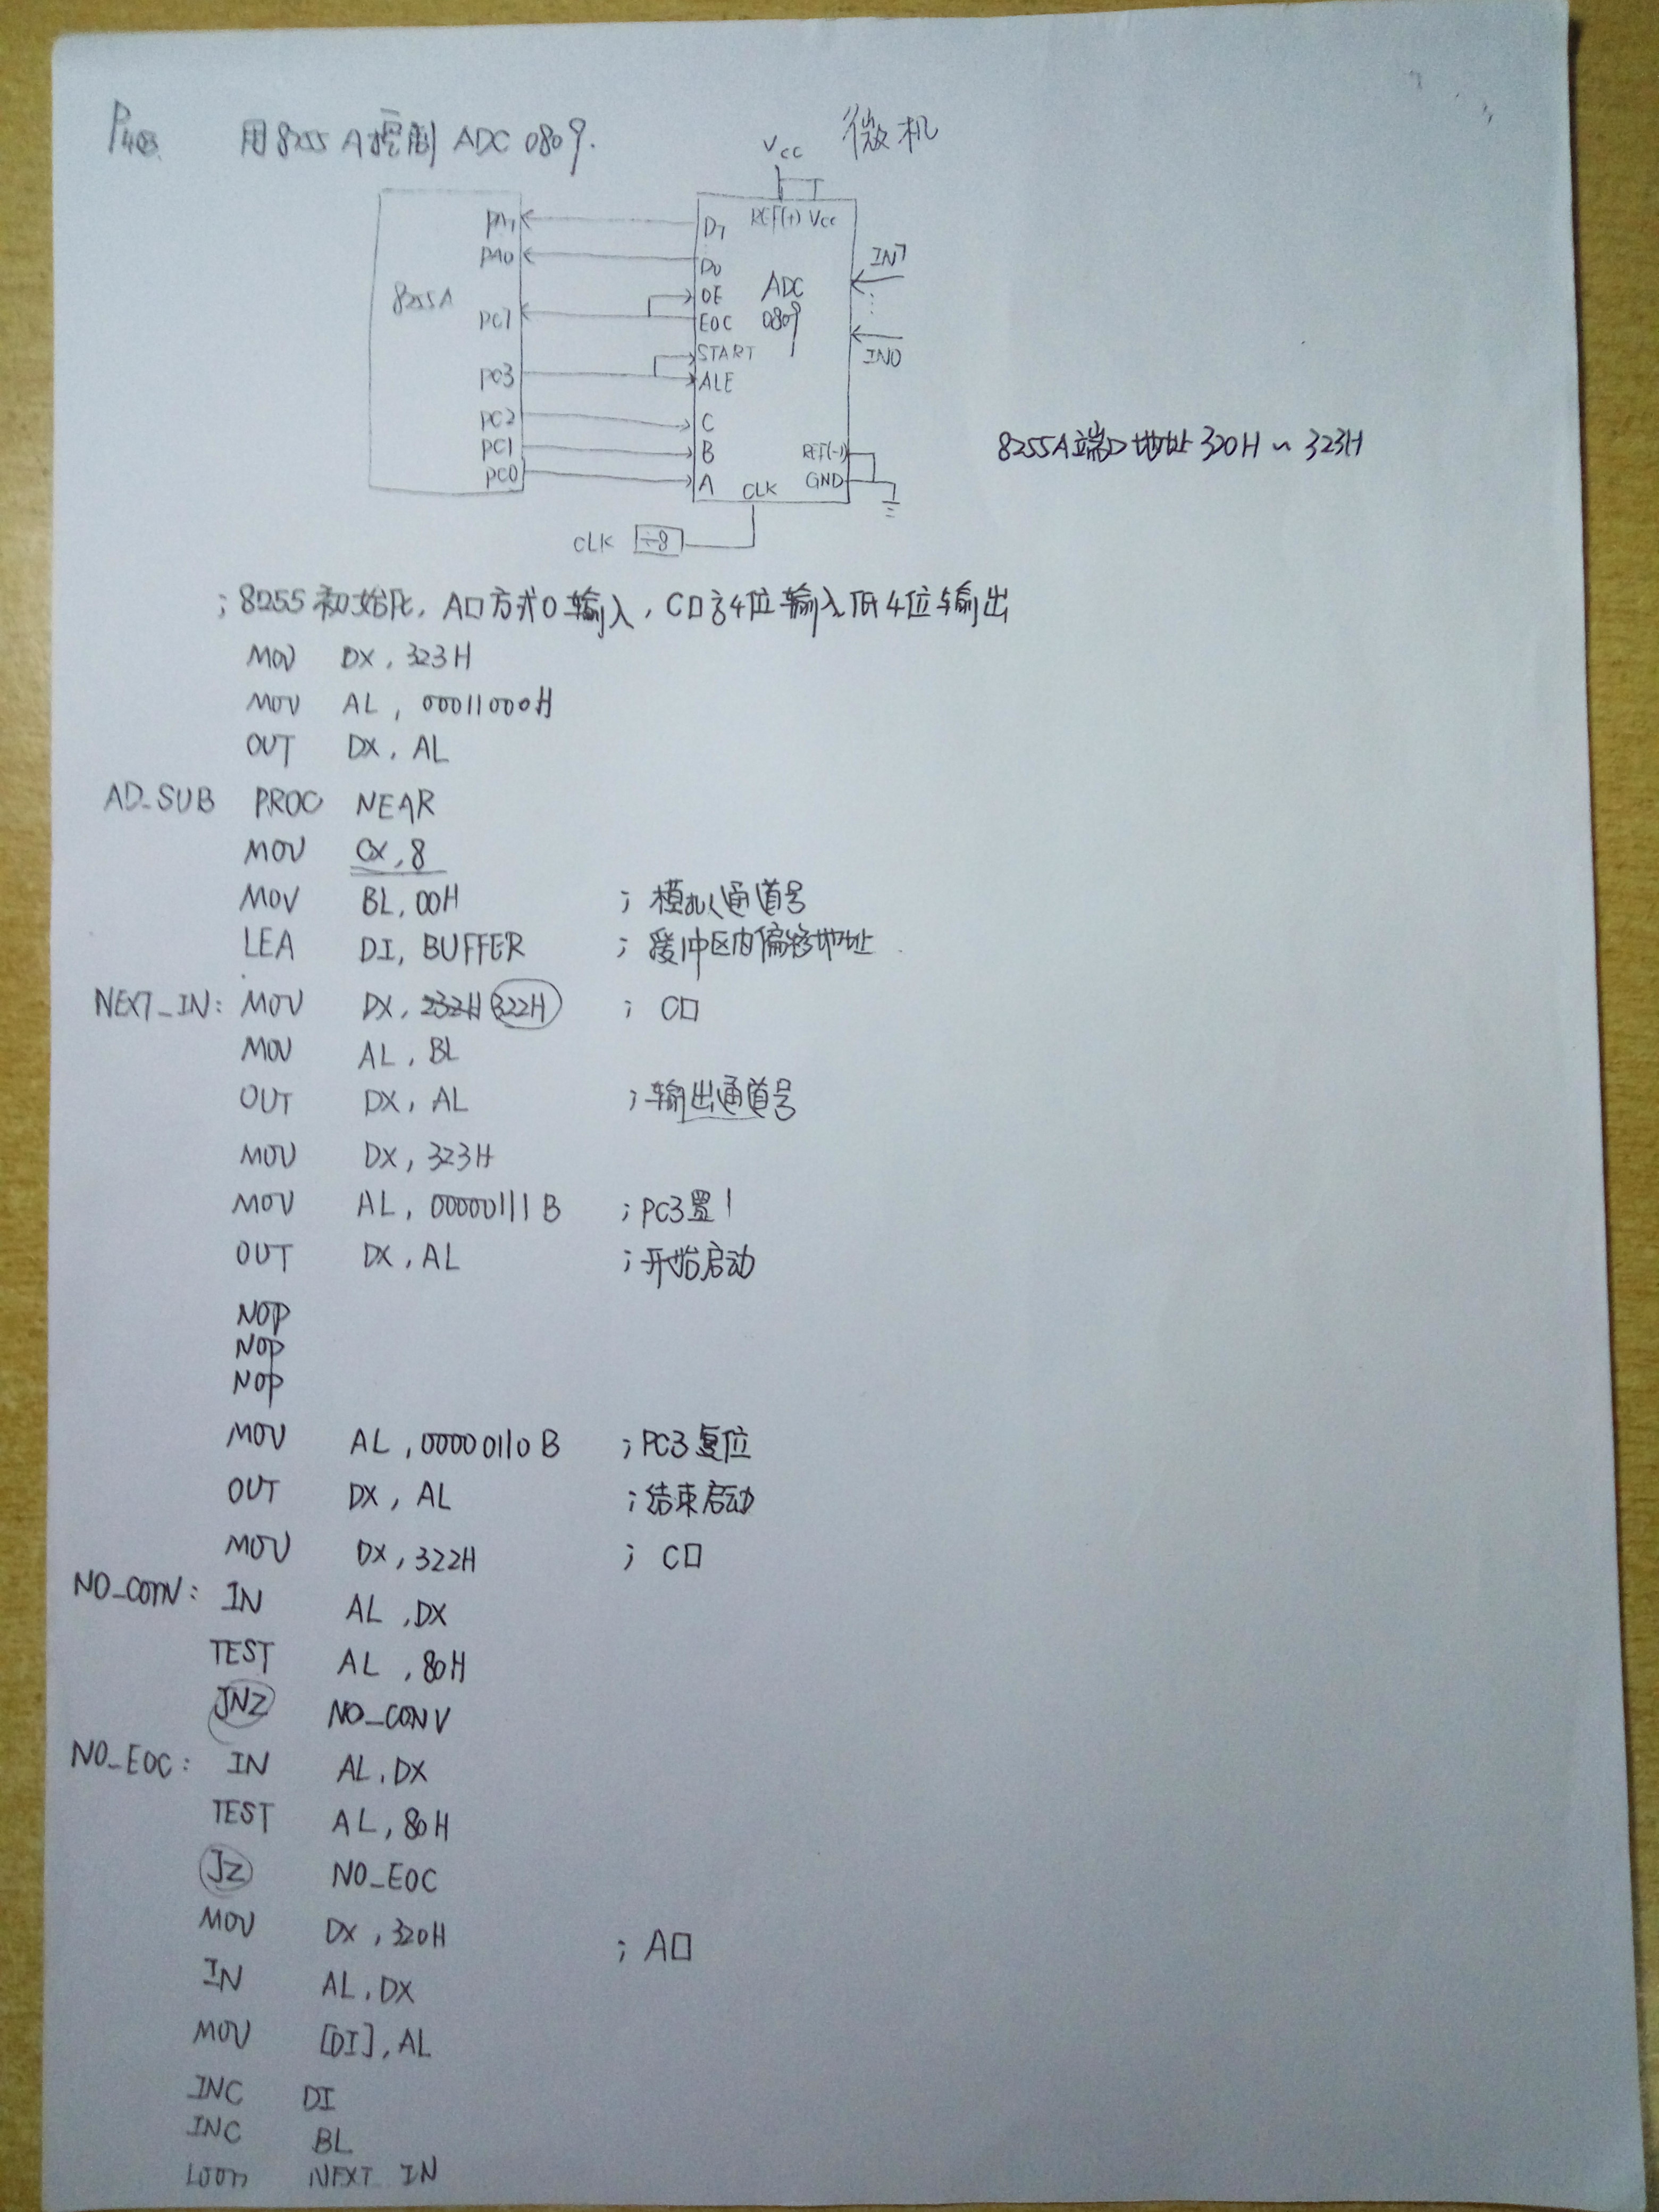 用8255A控制 ADC 0809. 微机
VCC
PA7 D7 REF(+) VCC
PA0 D0 IN7
8255A OE ADC
PC7 EOC 0809
START IN0
PC3 ALE
PC2 C
PC1 B REF(-)
PC0 A CLK GND
8255A端口地址 320H ~ 323H
CLK ÷8
; 8255初始化, A口方式0输入, C口高4位输入低4位输出
MOV DX, 323H
MOV AL, 00011000H
OUT DX, AL
AD_SUB PROC NEAR
MOV CX, 8
MOV BL, 00H ; 模拟通道号
LEA DI, BUFFER ; 缓冲区内偏移地址
NEXT_IN: MOV DX, 232H 322H ; C口
MOV AL, BL
OUT DX, AL ; 输出通道号
MOV DX, 323H
MOV AL, 00000111B ; PC3置1
OUT DX, AL ; 开始启动
NOP
NOP
NOP
MOV AL, 00000110B ; PC3复位
OUT DX, AL ; 结束启动
MOV DX, 322H ; C口
NO_CONV: IN AL, DX
TEST AL, 80H
JNZ NO_CONV
NO_EOC: IN AL, DX
TEST AL, 80H
JZ NO_EOC
MOV DX, 320H ; A口
IN AL, DX
MOV [DI], AL
INC DI
INC BL
LOOP NEXT_IN